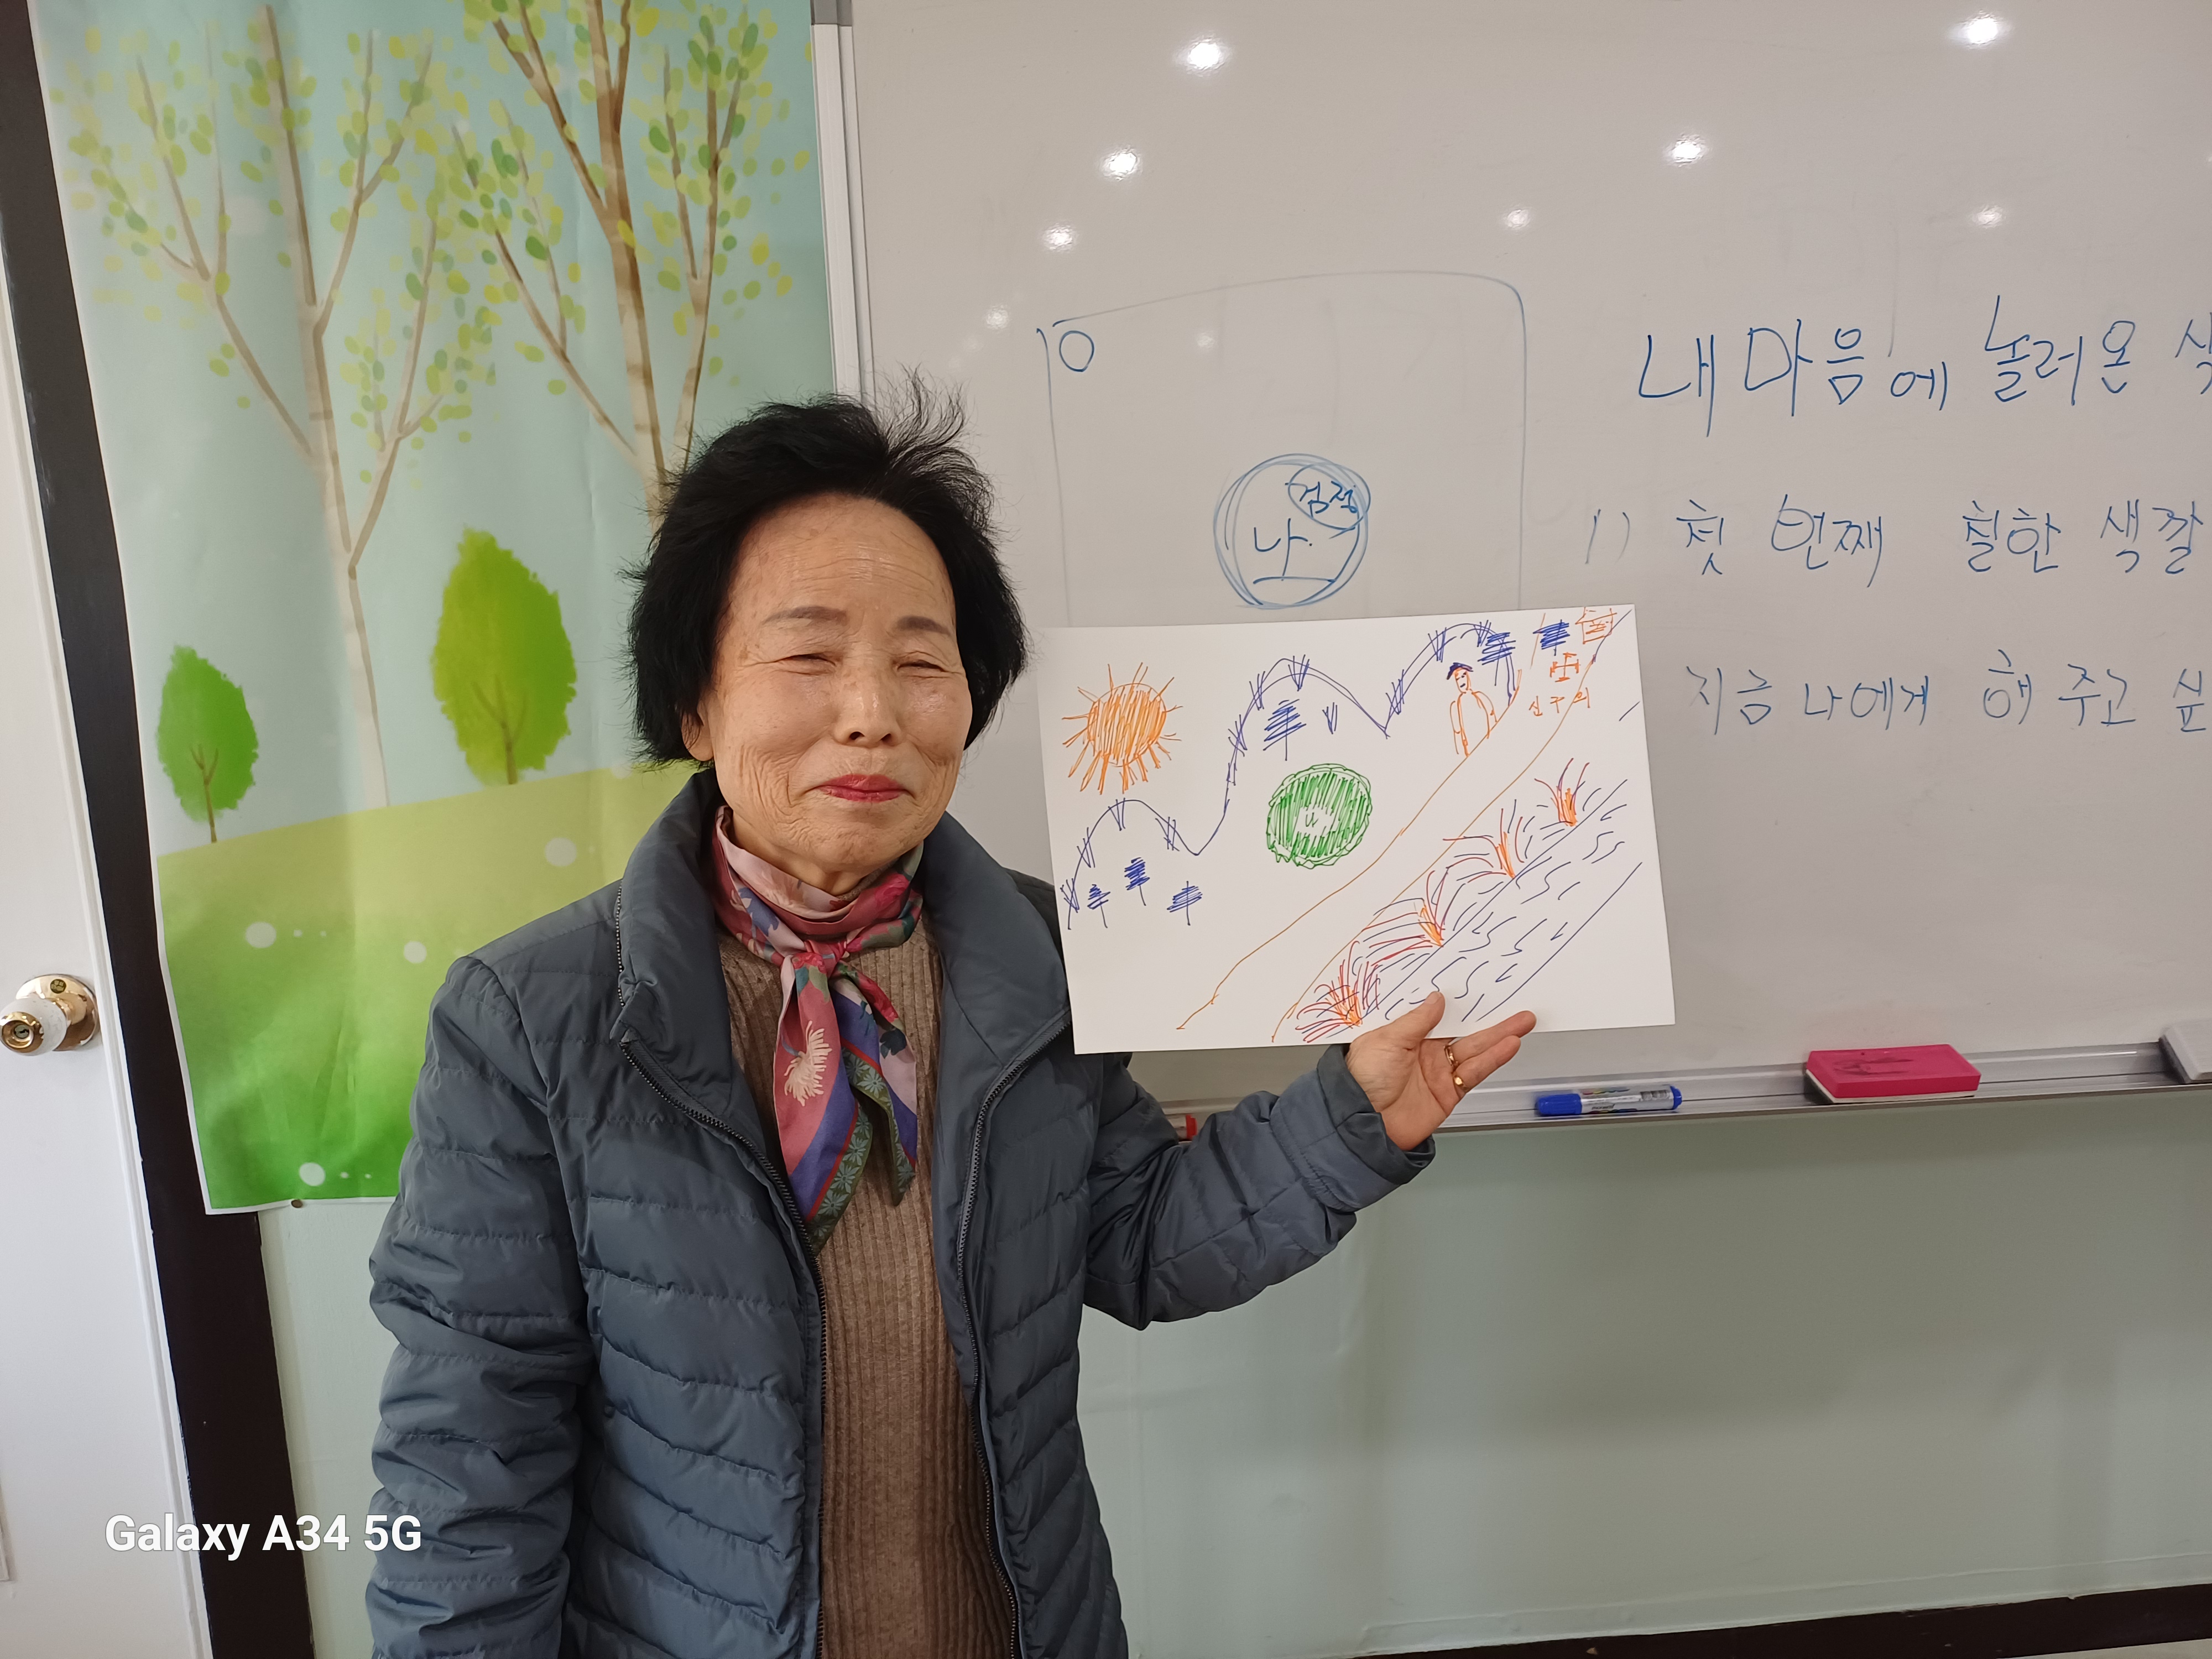 내 마음에 놀러온
검정
나
1) 첫 번째 칠한 색깔
지금 나에게 해 주고
나
Galaxy A34 5G